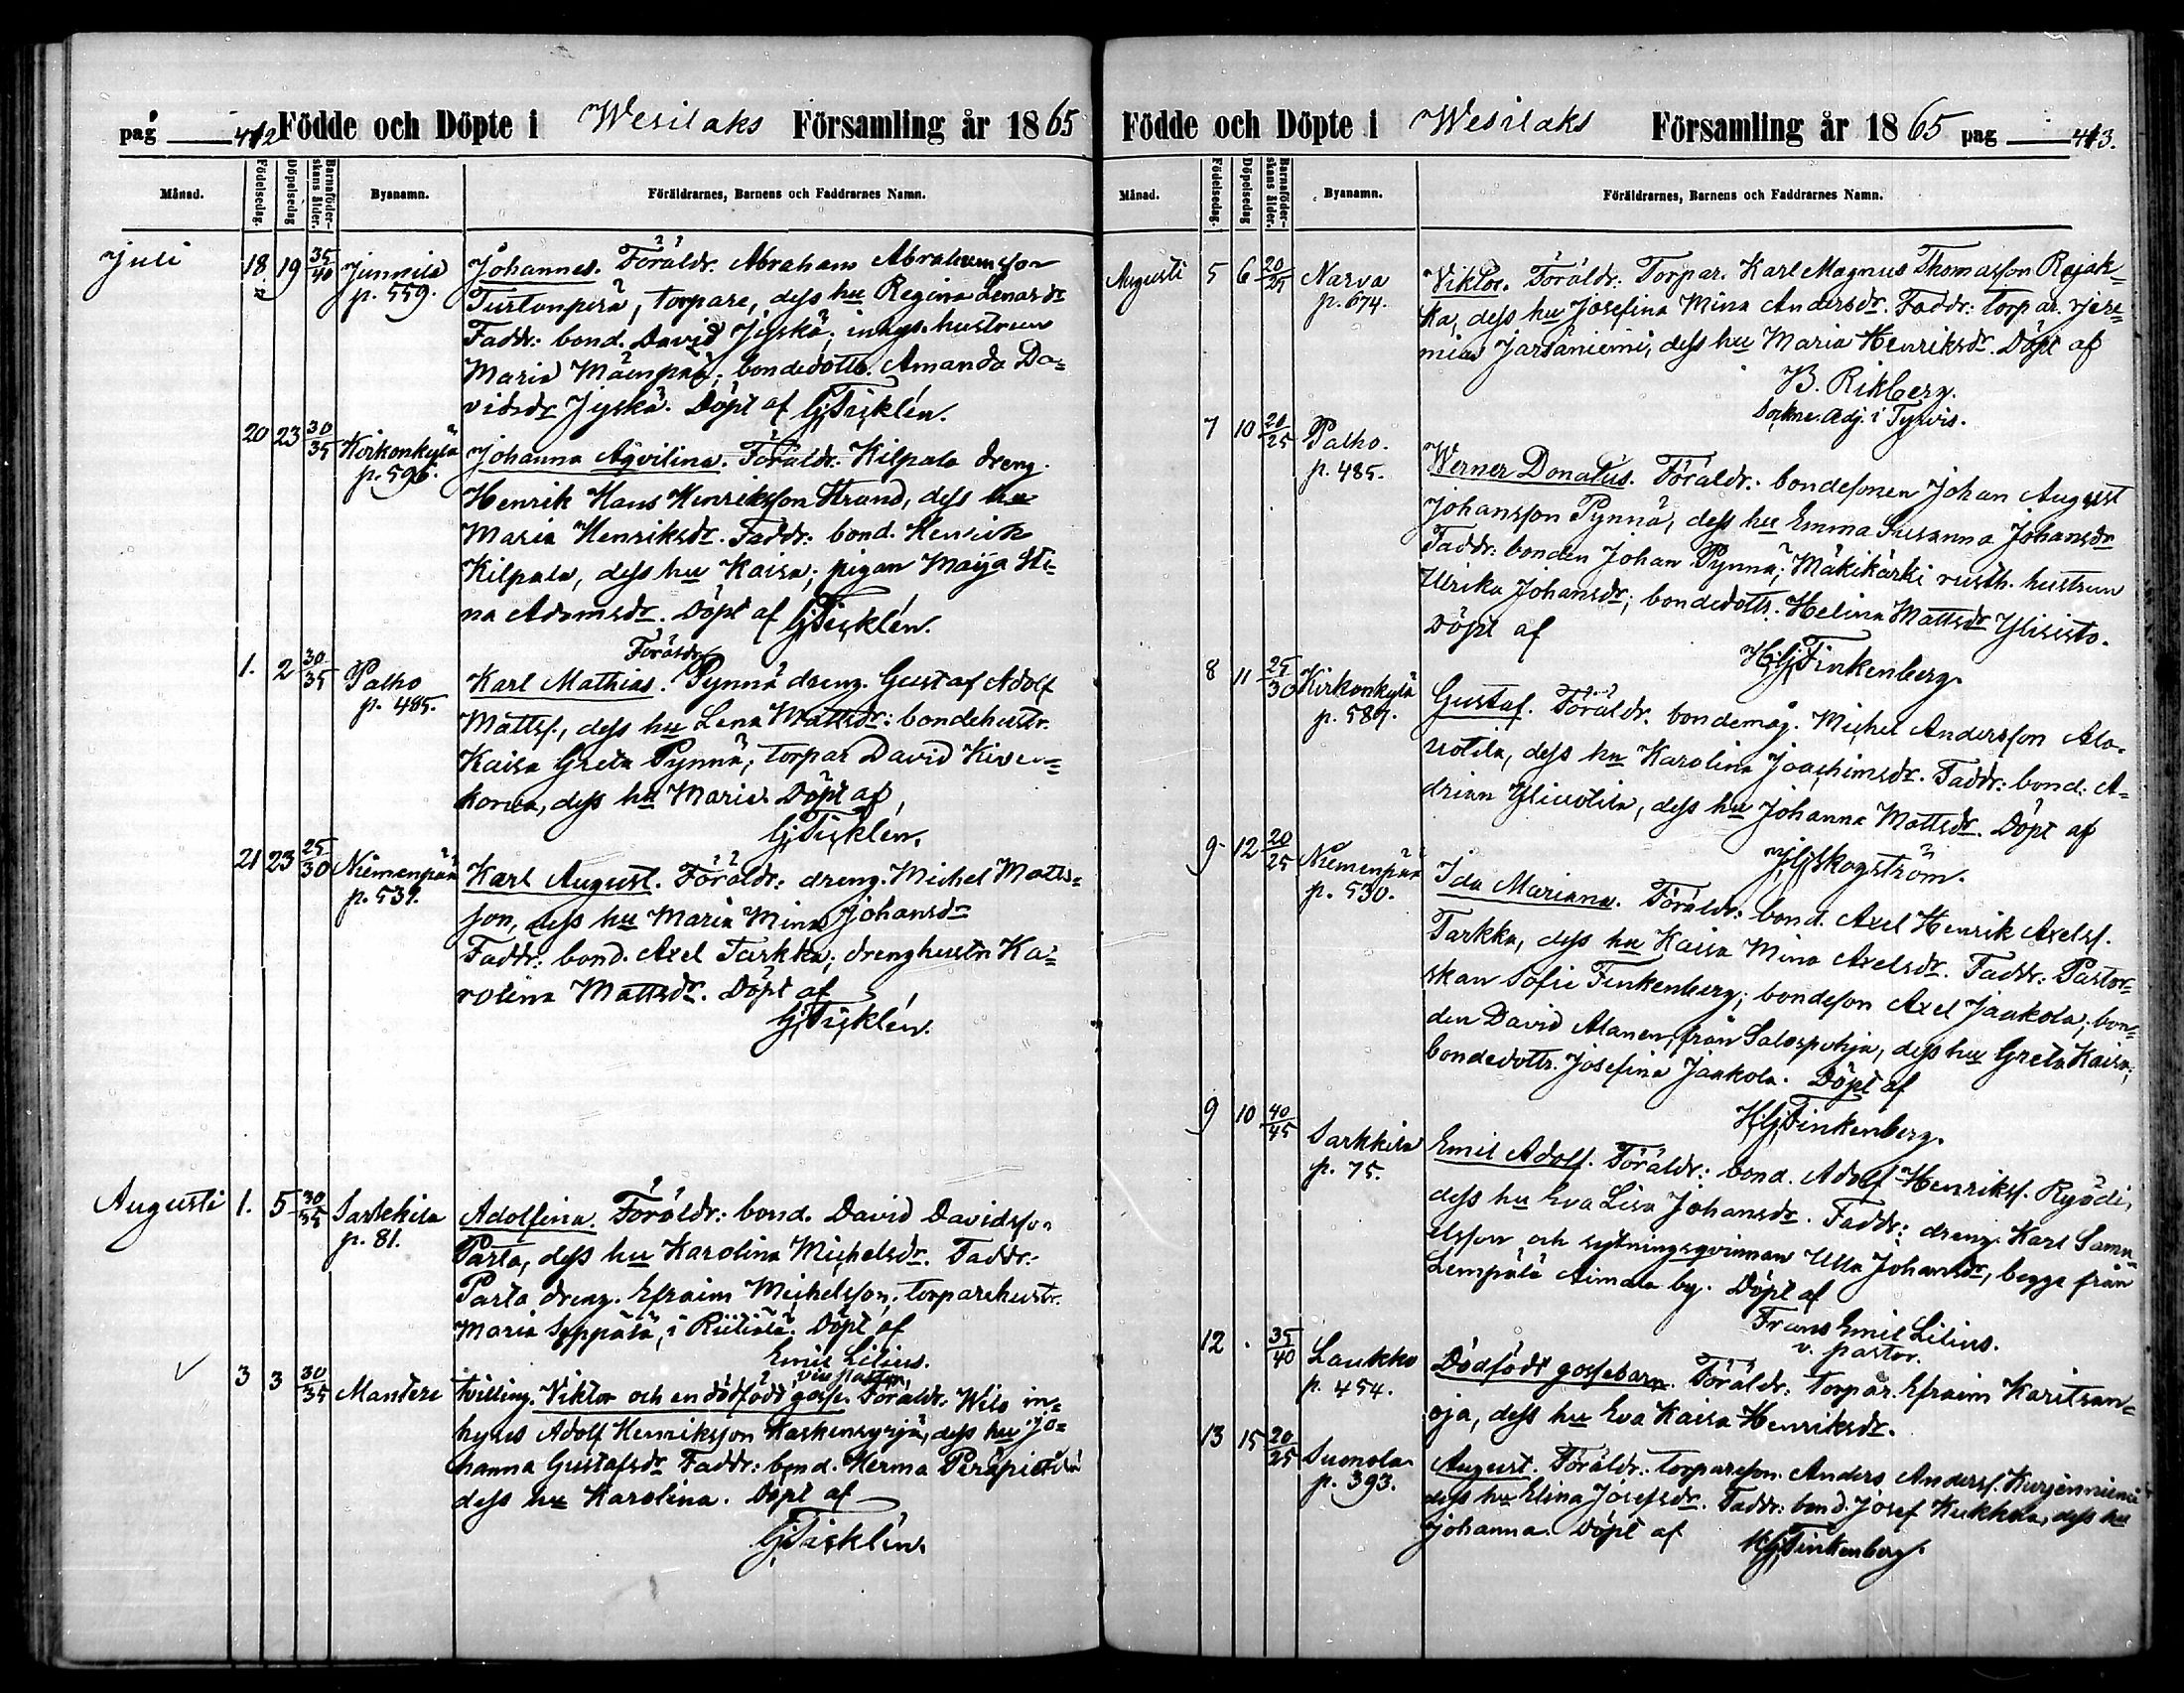 pag 412 Födde och Döpte i Wesilaks Församling år 1865
Månad. Födelsedag. Döpelsedag Barnaföderskans ålder. Byanamn. Föräldrarnes, Barnens och Faddrarnes Namn.
Juli 18 19 35/40 Junnila Johannes. Föräldr. Abraham Abrahamsson
p. 559. torpare, dess hu Regina Lenasdr
Faddr: bond. David Jyskä, inhys. hustrun
Maria Mäenpää; bondedottr. Amanda Da=
vidsdr Jyskä. Döpt af G. Ticklén.
20 23 30/35 Kirkonkylä Johanna Aqvilina. Föräldr: Kilpala dreng.
p. 596. Henrik Hans Henriksson Strand, dess hu
Maria Henriksdr. Faddr: bond. Henrik
Kilpala, dess hu Kaisa; pigan Maija Sti=
na Adamsdr. Döpt af G. Ticklén.
Föräldr
1. 2 30/35 Palho Karl Mathias. Pynnä dreng. Gustaf Adolf
p. 485. Mattss., dess hu Lena Mattsdr: bondehustr.
Kaisa Greta Pynnä, torpar David Kiven=
korva, dess hu Maria. Döpt af
G. Ticklén.
21 23 25/30 Niemenpää Karl August. Föräldr: dreng. Michel Matts=
p. 539. son, dess hu Maria Mina Johansdr
Faddr: bond. Axel Tarkka; drenghustr Ka=
rolina Mattsdr. Döpt af
G. Ticklén.
Augusti 1. 5 30/35 Sarkkila Adolfina. Föräldr: bond. David Davidsson
p. 81. Parta, dess hu Karolina Michelsdr. Faddr:
Parta dreng. Efraim Michelsson, torparehustr.
Maria Seppälä, i Riitiala. Döpt af
Emil Lilius.
vice pastor,
3 3 30/35 Mantere tvilling. Viktor och en dödfödt gosse. Föräldr. in=
hyses Adolf Henriksson dess hu Jo=
hanna Gustafsdr Faddr: bond. Herma
dess hu Karolina. Döpt af
G. Ticklén.
Födde och Döpte i Wesilaks Församling år 1865 pag 413.
Månad. Födelsedag. Döpelsedag Barnaföderskans ålder. Byanamn. Föräldrarnes, Barnens och Faddrarnes Namn.
Augusti 5 6 20/25 Narva Viktor. Föräldr: Torpar. Karl Magnus Thomasson Rajak=
p. 674. ka, dess hu Josefina Mina Andersdr. Faddr: torpar. Jere=
mias Jarsaniemi, dess hu Maria Henriksdr. Döpt af
B. Rikberg.
Sockne. Adj. i Tyrvis.
7 10 20/25 Palho. Werner Donatus. Föräldr: bondesonen Johan August
p. 485. Johansson Pynnä, dess hu Emma Susanna Johansdr
Faddr: bonden Johan Pynnä; Mäkikärki rusth. hustrun
Ulrika Johansdr; bondedottr. Helina Mattsdr Ylisisto.
Döpt af
H. G. Finkenberg.
8 11 25/30 Kirkonkylä Gustaf. Föräldr. bondemåg. Michel Andersson Ala=
p. 587. uotila, dess hu Karolina Joachimsdr. Faddr: bond. A=
drian Yliuotila, dess hu Johanna Mattsdr. Döpt af
J. G. Skogström.
9 12 20/25 Niemenpää Ida Mariana. Föräldr: bond. Axel Henrik Axelss.
p. 530. Tarkka, dess hu Kaisa Mina Axelsdr. Faddr: Pastor=
skan Sofie Finkenberg; bondeson Axel Jaakola; bon=
den David Alanen från Salospohja, dess hu Greta Kaisa;
bondedottr. Josefina Jaakola. Döpt af
H. G. Finkenberg.
9 10 40/45 Sarkkila Emil Adolf. Föräldr: bond. Adolf Henrikss. Ryödi,
p. 75. dess hu Eva Lisa Johansdr. Faddr: dreng. Karl Samu=
elsson och sytningsqvinnan Ulla Johansdr, begge från
Lempälä Aimala by. Döpt af
Frans Emil Lilius.
v. pastor.
12 . 35/40 Laukko Dödfödt gossebarn. Föräldr: torpar. Efraim Karitsan=
p. 454. oja, dess hu Eva Kaisa Henriksdr.
13 15 20/25 Suomela August. Föräldr: torpareson. Anders Anderss. Kurjenniemi
p. 393. dess hu Elina Josefsdr. Faddr: bond. Josef Kukkola, dess hu
Johanna. Döpt af H. G. Finkenberg.